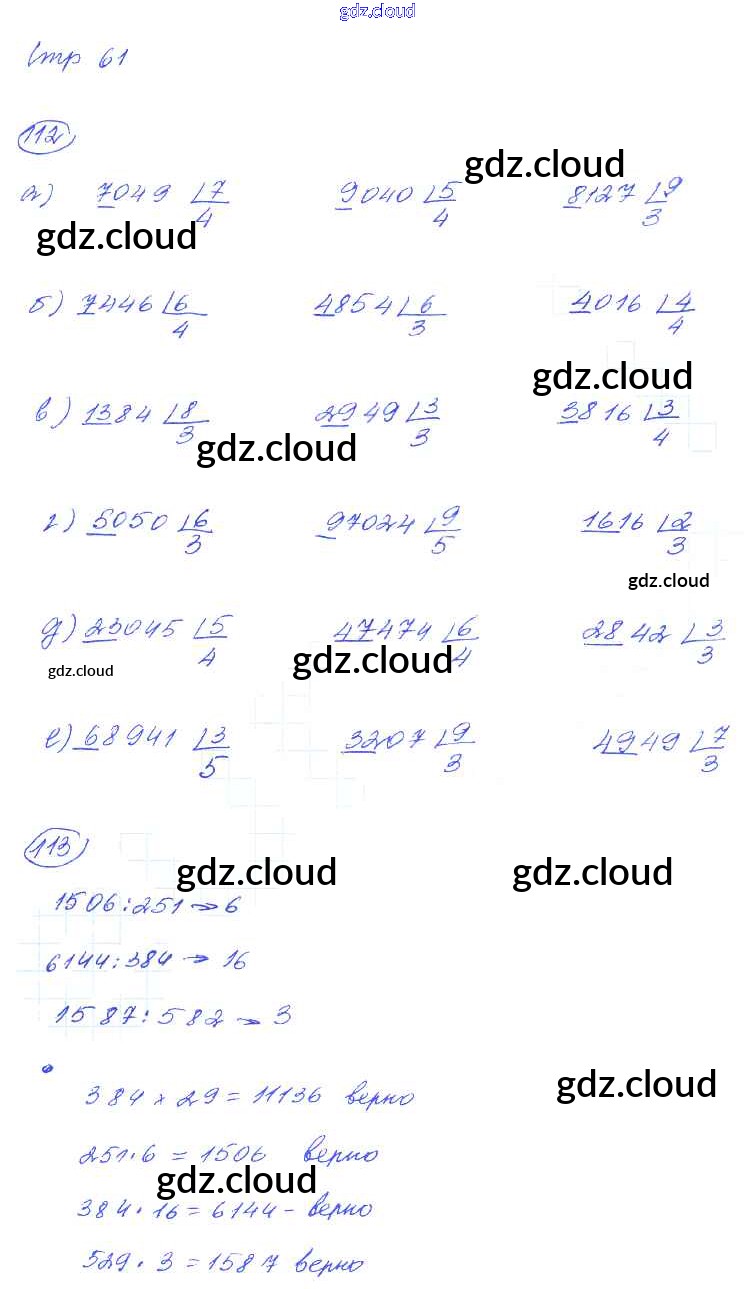 gdz.cloud
Стр 61
112
gdz.cloud
а) 7049 7 9040 5 8127 9
4 4 3
gdz.cloud
б) 7446 6 4854 6 4016 4
4 3 4
gdz.cloud
в) 1384 8 2949 3 3816 3
3 3 4
gdz.cloud
г) 5050 6 97024 9 1616 2
3 5 3
gdz.cloud
д) 23045 5 47474 6 2842 3
4 4 3
gdz.cloud gdz.cloud
е) 68941 3 3207 9 4949 7
5 3 3
113
gdz.cloud gdz.cloud
1506:251→6
6144:384→16
1587:582→3
gdz.cloud
384×29=11136 верно
251·6=1506 верно
gdz.cloud
384·16=6144- верно
529·3=1587 верно